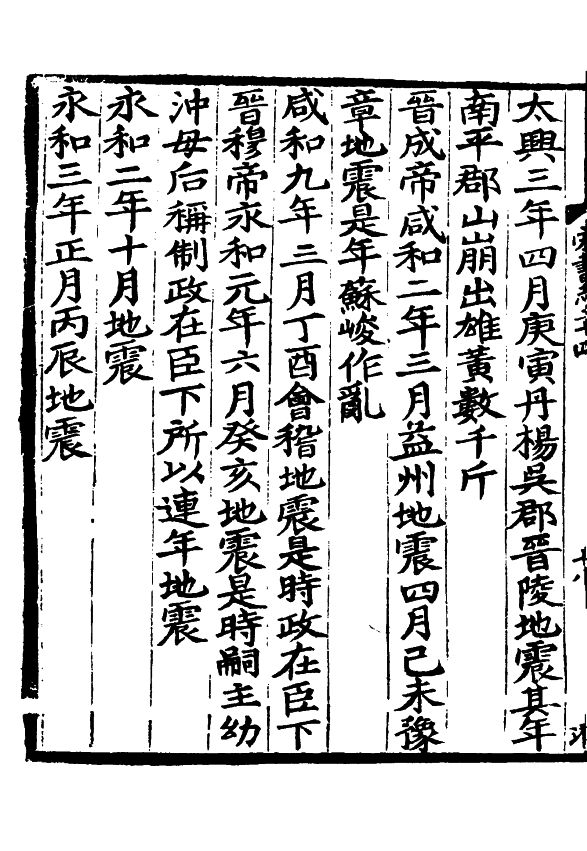 太興三年四月庚寅丹楊吳郡晉陵地震其年
南平郡山崩出雄黃數千斤
晉成帝咸和二年三月益州地震四月己未豫
章地震是年蘇峻作亂
咸和九年三月丁酉會稽地震是時政在臣下
晉穆帝永和元年六月癸亥地震是時嗣主幼
沖母后稱制政在臣下所以連年地震
永和二年十月地震
永和三年正月丙辰地震